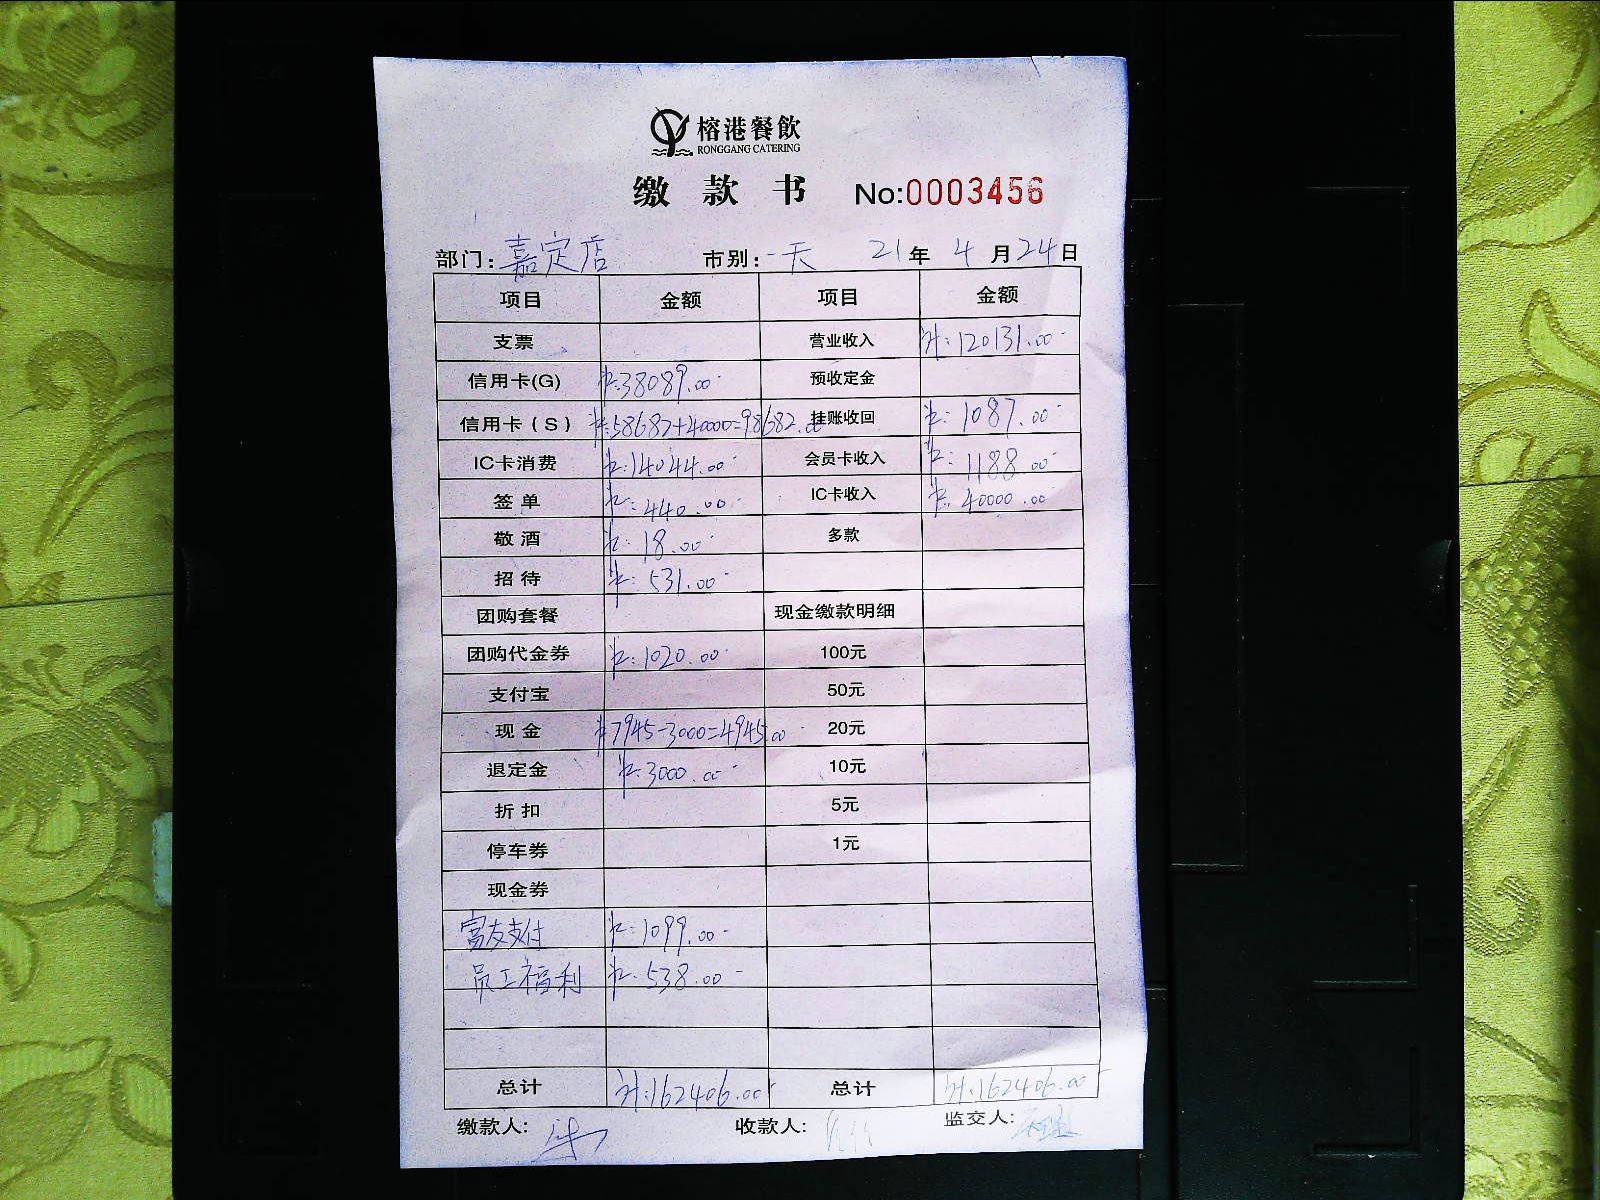 榕港餐飲
RONGGANG CATERING
缴款书 No:0003456
部门: 嘉定店 市别: 一天 21年 4月 24日
项目 金额 项目 金额
支票 营业收入 计: 120131.00
信用卡(G) 卡:38089.00 预收定金
信用卡(S) 卡:58682+40000=98682.00 挂账收回 卡: 1087.00
IC卡消费 卡:14044.00 会员卡收入 卡: 1188.00
签单 卡: 440.00 IC卡收入 卡: 40000.00
敬酒 卡: 18.00 多款
招待 卡: 531.00
团购套餐 现金缴款明细
团购代金券 卡: 1020.00 100元
支付宝 50元
现金 卡7945-3000=4945.00 20元
退定金 卡:3000.00 10元
折扣 5元
停车券 1元
现金券
富友支付 卡: 1099.00
员工福利 卡: 538.00
总计 计:162406.00 总计 计:162406.00
缴款人: 收款人: 监交人: